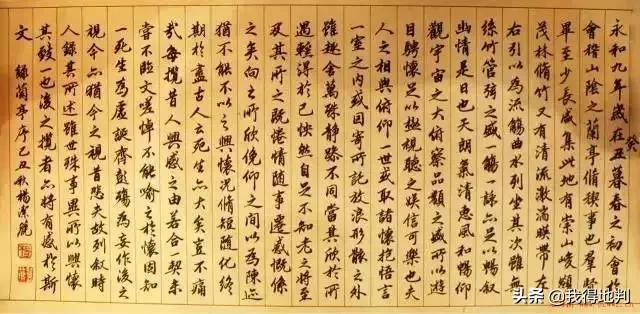 永和九年歲在癸丑暮春之初會於
會稽山陰之蘭亭脩稧事也羣賢
畢至少長咸集此地有崇山峻領
茂林脩竹又有清流激湍暎帶左
右引以為流觴曲水列坐其次雖無
絲竹管弦之盛一觴一詠亦足以暢叙
幽情是日也天朗氣清惠風和暢仰
觀宇宙之大俯察品類之盛所以遊
目騁懷足以極視聽之娛信可樂也夫
人之相與俯仰一世或取諸懷抱悟言
一室之內或因寄所託放浪形骸之外
雖趣舍萬殊靜躁不同當其欣於所
遇輒得於己怏然自足不知老之將至
及其所之既惓情隨事遷感慨係
之矣向之所欣俛仰之間以為陳迹
猶不能不以之興懷況脩短隨化終
期於盡古人云死生亦大矣豈不痛
哉每攬昔人興感之由若合一契未
嘗不臨文嗟悼不能喻之於懷固知
一死生為虛誕齊彭殤為妄作後之
視今亦猶今之視昔悲夫故列叙時
人錄其所述雖世殊事異所以興懷
其致一也後之攬者亦將有感於斯
文 錄蘭亭序己丑秋楊潔
头条 @我得地判